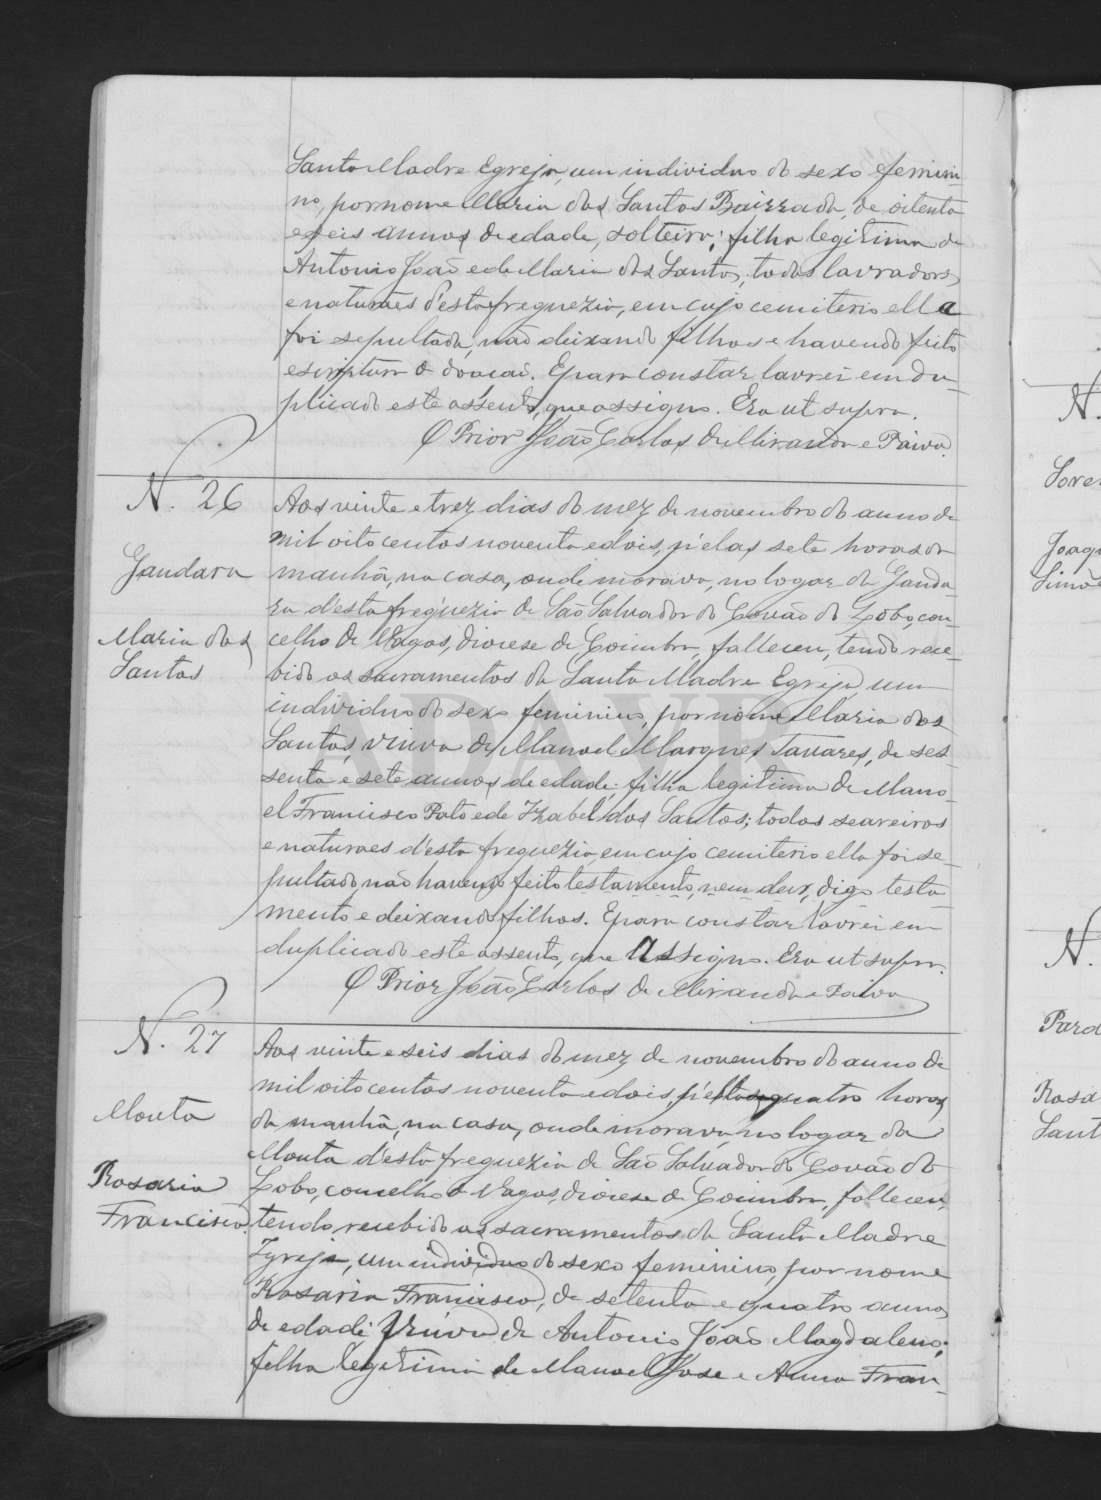 Santa Madre Egreja, um individuo do sexo femini-
no, por nome Maria dos Santos Bairrada, de oitenta
e seis annos de edade, solteira; filha legitima de
Antonio João e de Maria dos Santos, todos lavradores,
e naturaes d'esta freguezia, em cujo cemiterio ella
foi sepultada, não deixando filhos e havendo feito
escriptura de doação. E para constar lavrei em du-
plicado este assento, que assigno. Era ut supra.
O Prior João Carlos de Miranda e Paiva.
N. 26
Gandara
Maria dos
Santos
Aos vinte e trez dias do mez de novembro do anno de
mil oito centos noventa e dois, p'elas sete horas da
manhã, na casa, onde morava, no logar da Ganda-
ra d'esta freguezia de São Salvador do Covão do Lobo, con-
celho de Vagos, diocese de Coimbra, falleceu, tendo rece-
bido os sacramentos da Santa Madre Egreja, um
individuo do sexo feminino, por nome Maria dos
Santos, viuva de Manoel Marques Tavares, de ses-
senta e sete annos de edade; filha legitima de Mano-
el Francisco Pato e de Izabel dos Santos; todos seareiros
e naturaes d'esta freguezia, em cujo cemiterio ella foi se-
pultada, não havendo feito testamento, nem deix, digo testa-
mento e deixando filhos. E para constar lavrei em
duplicado este assento, que assigno. Era ut supra.
O Prior João Carlos de Miranda e Paiva
N. 27
Mouta
Rosaria
Francisca
Aos vinte e seis dias do mez de novembro do anno de
mil oito centos noventa e dois, p'ellas quatro horas
da manhã, na casa, onde morava, no logar da
Mouta d'esta freguezia de São Salvador do Covão do
Lobo, concelho de Vagos, diocese de Coimbra, falleceu,
tendo recebido os sacramentos da Santa Madre
Igreja, um individuo do sexo feminino, por nome
Rosaria Francisca, de setenta e quatro annos
de edade, viuva de Antonio João Magdaleno;
filha legitima de Manoel José e Anna Fran-
ADAVR
N.
Joaq
Simõe
N.
Rosa
Sant